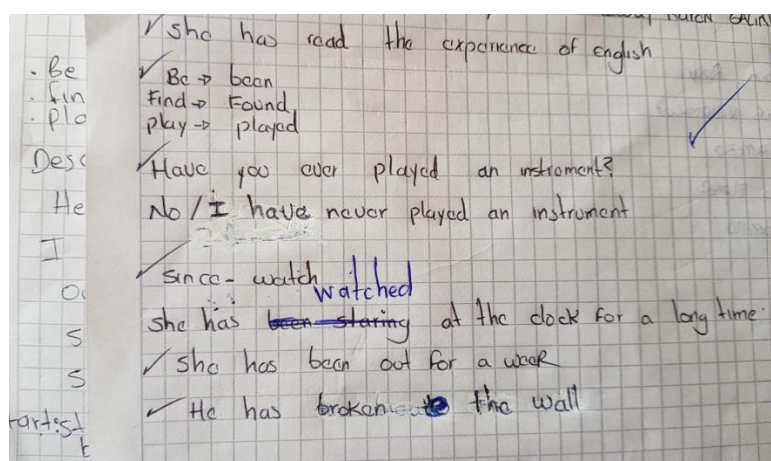 She has read the experience of english
Be → been
Find → Found
play → played
Have you ever played an instroment?
No / I have never played an instrument
Since - watch watched
She has been staring at the clock for a long time.
She has been out for a week
He has broken the wall
. Be
. fin
. pla
Desc
He
I
O
S
S
artist
t